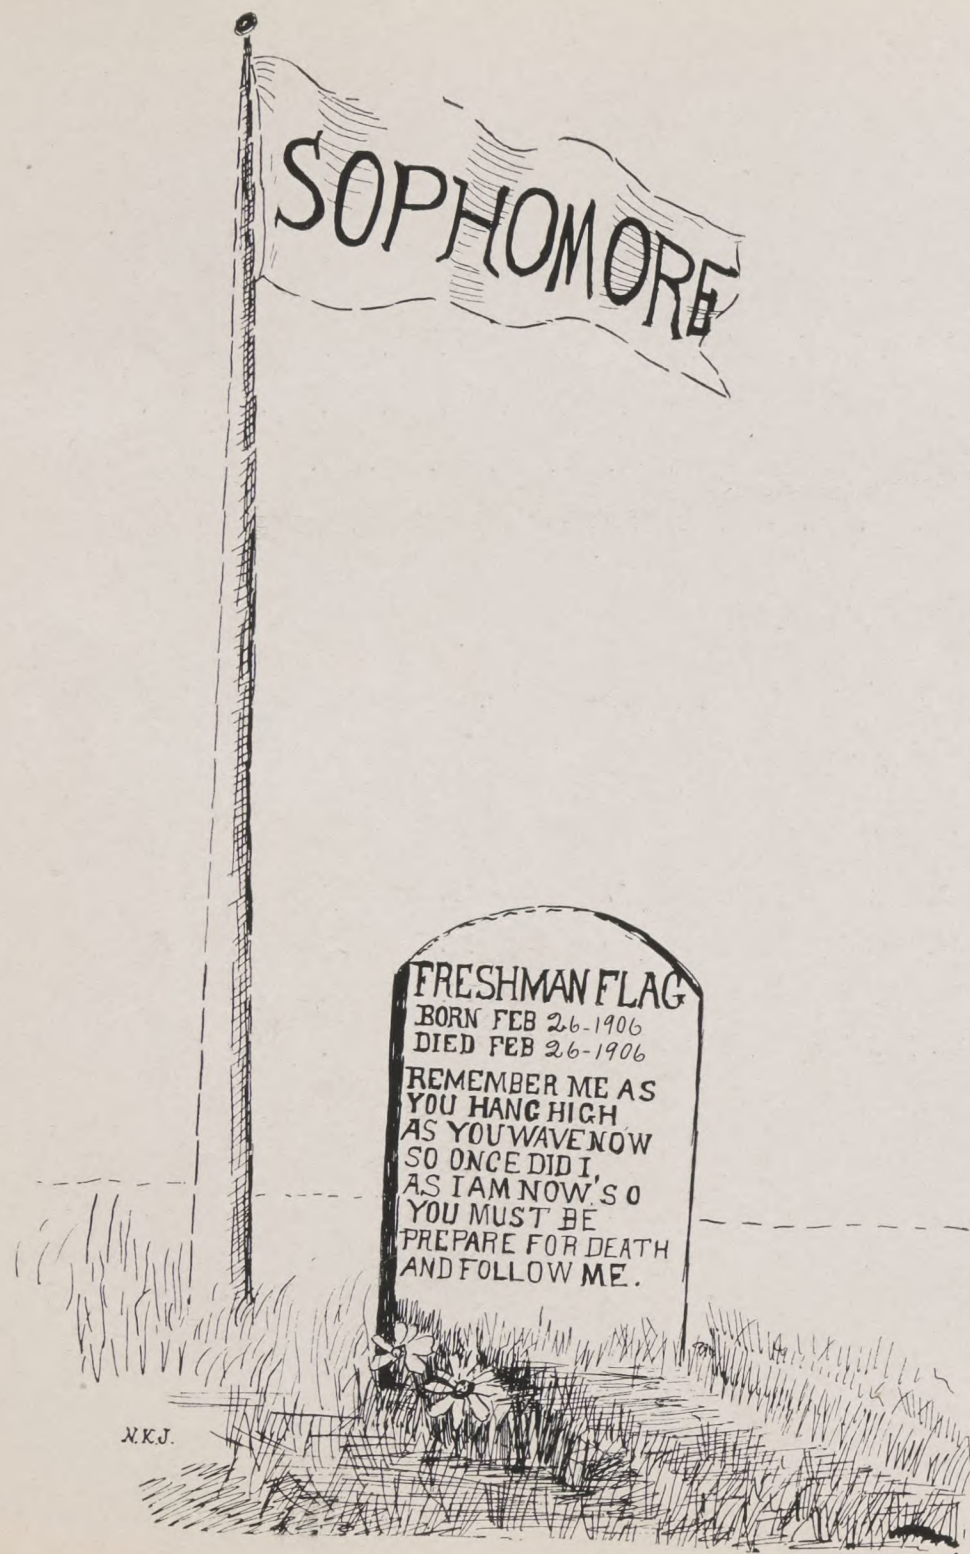 SOPHOMORE
FRESHMAN FLAG
BORN FEB 26-1906
DIED FEB 26-1906
REMEMBER ME AS
YOU HANG HIGH
AS YOU WAVE NOW
SO ONCE DID I,
AS I AM NOW.'SO
YOU MUST BE
PREPARE FOR DEATH
AND FOLLOW ME.
N.K.J.